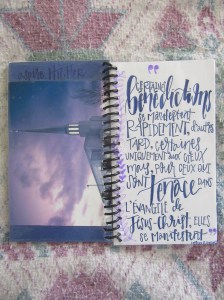 CERTAINES
bénédictions
se manifestent
RAPIDEMENT, d'autres
TARD, certaines
UNIQUEMENT aux cieux
mais, pour ceux qui
SONT Tenace DANS
L'ÉVANGILE de
Jésus-Christ, ELLES
se manifestent